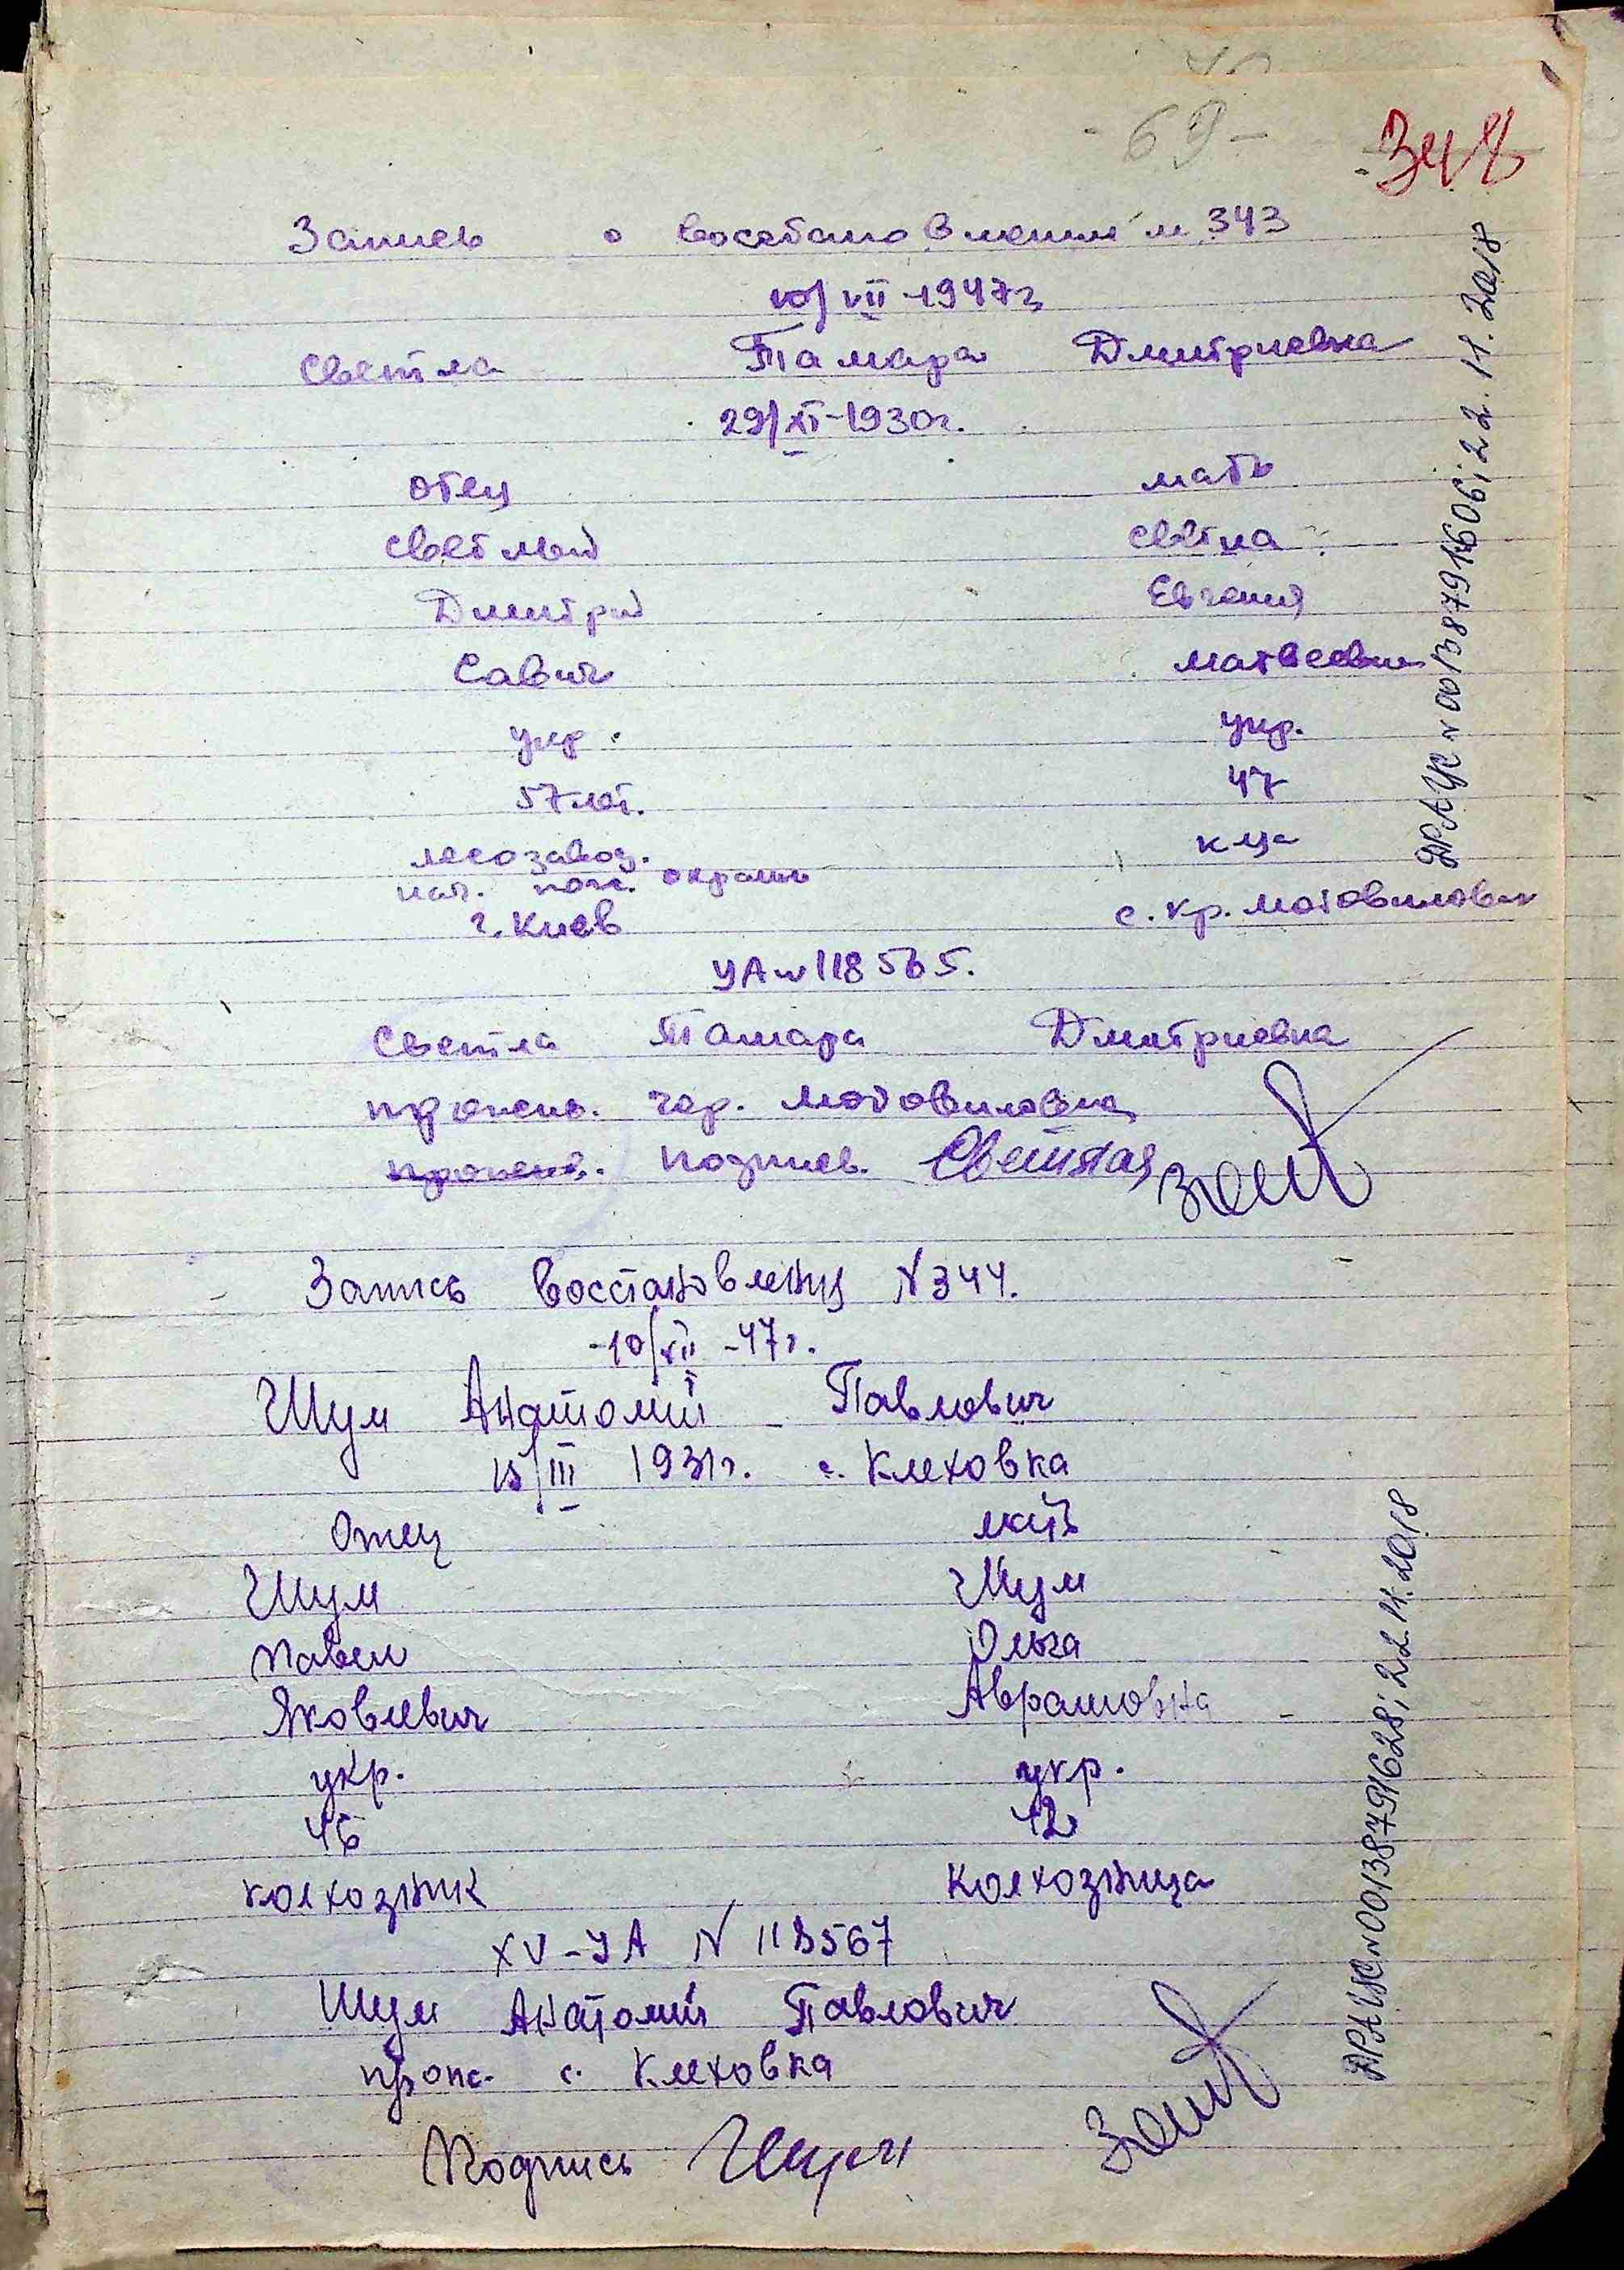 - 69 -
348
Запись о восстановлении № 343
10/VII-1947г
Светла Тамара Дмитриевна
29/XI-1930г.
отец мать
Светлый Светла
Дмитрий Евгения
Савич Матвеевна
укр. укр.
57 лет. 47
лесозавод. к-ца
нач. пож. охраны
г. Киев с. Кр. Мотовиловка
УА №118565.
Светла Тамара Дмитриевна
прожив. Мотовиловка
подпись. Светлая
Запись Восстановления №344.
-10/VII-47г.
Шум Анатолий Павлович
15/III 1931г. с. Клеховка
Отец мать
Шум Шум
Павел Ольга
Яковлевич Аврамовна
укр. укр.
46 42
колхозник Колхозница
XV-УА № 118567
Шум Анатолий Павлович
прож. с. Клеховка
Подпись Шум
ДРАЦС № 00138791606; 22.11.2018
ДРАЦС № 00138791628; 22.11.2018